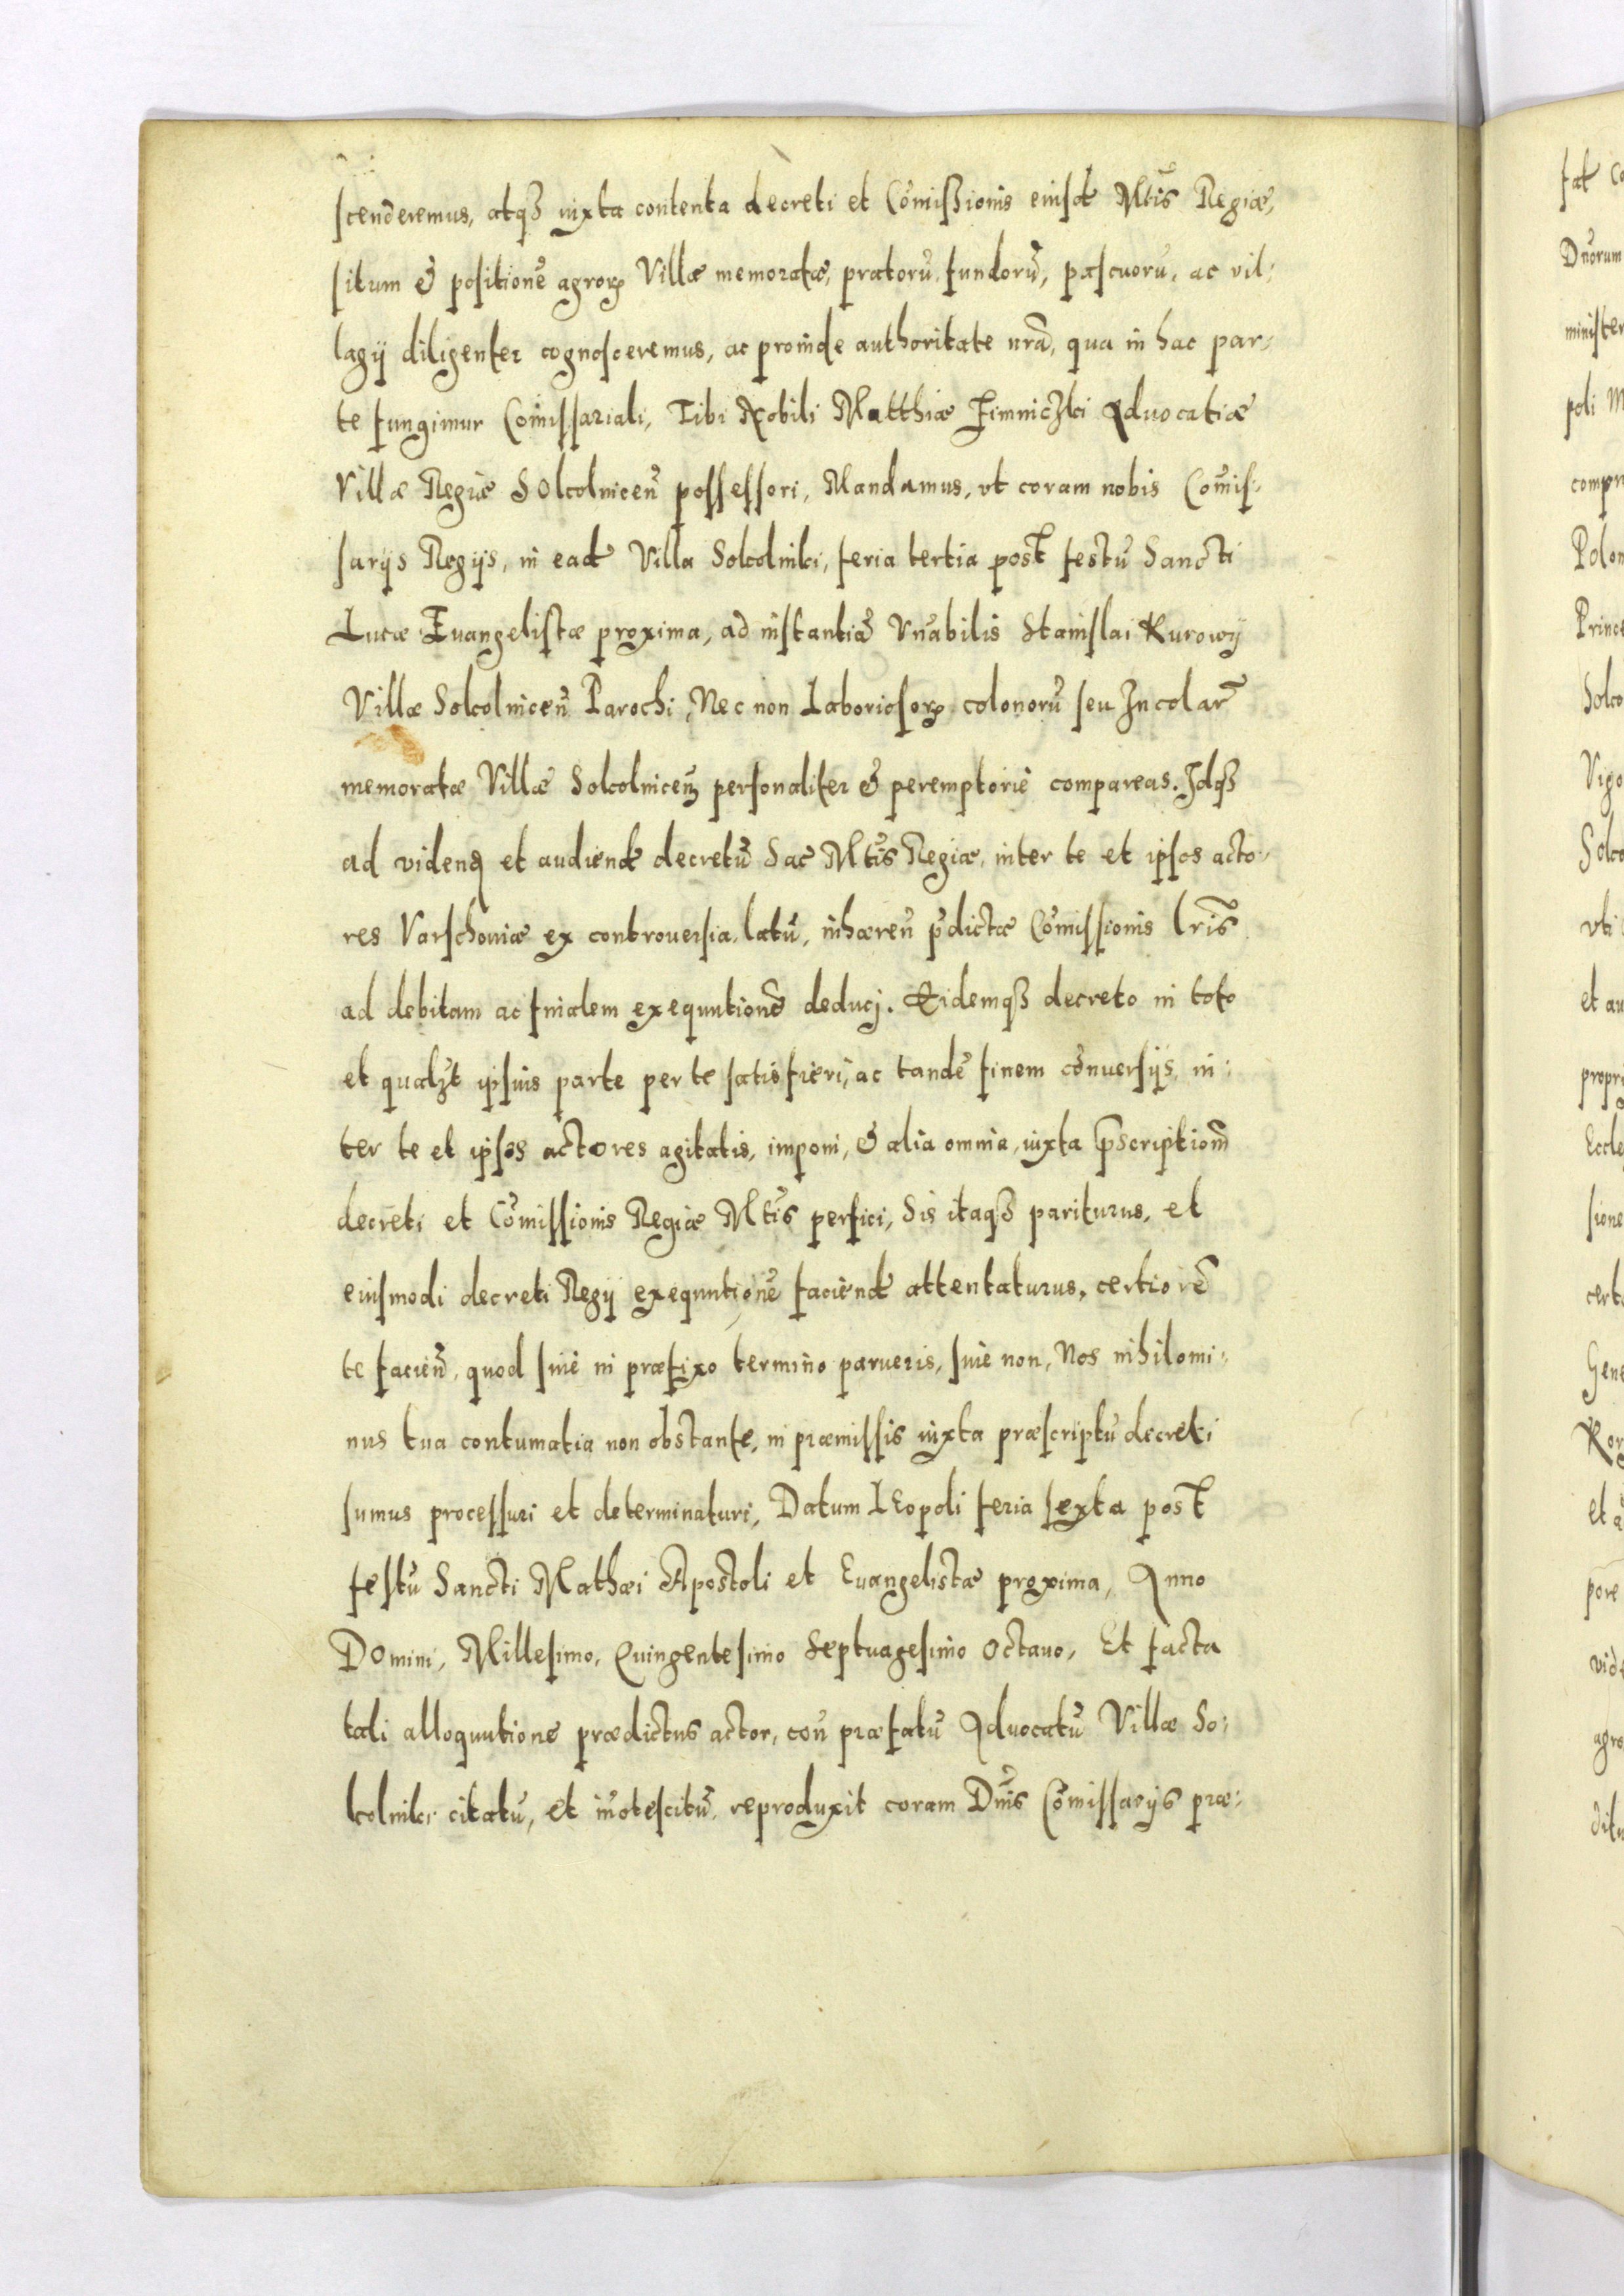 scenderemus, atqз iuxta contenta decreti et Com̃ißionis eiusd Mt̃is Regiæ,
situm & positionẽ agroꝝ Villæ memoratæ, pratorũ fundorũ, pascuorũ, ac vil:
lagij diligenter cognosceremus, ac proinde authoritate nrã, qua in hac par:
te fungimur Com̃issariali, Tibi Nobili Matthiæ Zimniczki Aduocatiæ
Villæ Regiæ SOkolniceñ possessori, Mandamus, vt coram nobis Com̃is:
sarijs Regijs, in ead Villa Sokolniki, feria tertia post festũ Sancti
Lucæ Euangelistæ proxima, ad instantiã Vñabilis Stanislai Kurowij
Villæ Sokolniceñ Parochi, Nec non Laboriosoꝝ colonorũ seu Incolar̃
memoratæ Villæ Sokolniceñ personaliter & peremptoriè compareas. Idqз
ad videnꝺ et audiend decretũ Sac̃ Mt̃is Regiæ, inter te et ipsos acto:
res Varschouiæ ex controuersia latũ, inhæreñ p̃dictæ Com̃issionis lr̃is
ad debitam ac finalem exequutionẽ deducj. Eidemqз decreto in toto
et qualꝫt ipsius parte per te satisfieri, ac tandẽ finem cõnuersijs in:
ter te et ipsos actores agitatis, imponi, & alia omnia, iuxta p̃scriptionẽ
decreti et Com̃issionis Regiæ Mt̃is perfici, Sis itaqз pariturus, et
eiusmodi decreti Regij exequutionẽ faciend attentaturus, certiorẽ
te facieñ, quod siuè in præfixo termino parueris, siuè non, Nos nihilomi:
nus tua contumatia non obstante, in præmissis iuxta præscriptũ decreti
sumus processuri et determinaturi, Datum LEopoli feria sexta post
festũ Sancti Mathæi Apostoli et Euangelistæ proxima, Anno
DOmini, Millesimo, Quingentesimo Septuagesimo Octauo, Et facta
tali alloquutione prædictus actor, coñ præfatũ Aduocatũ Villæ So:
kolniki citatũ, et iñotescitũ, reproduxit coram Dñis Com̃issarijs præ: